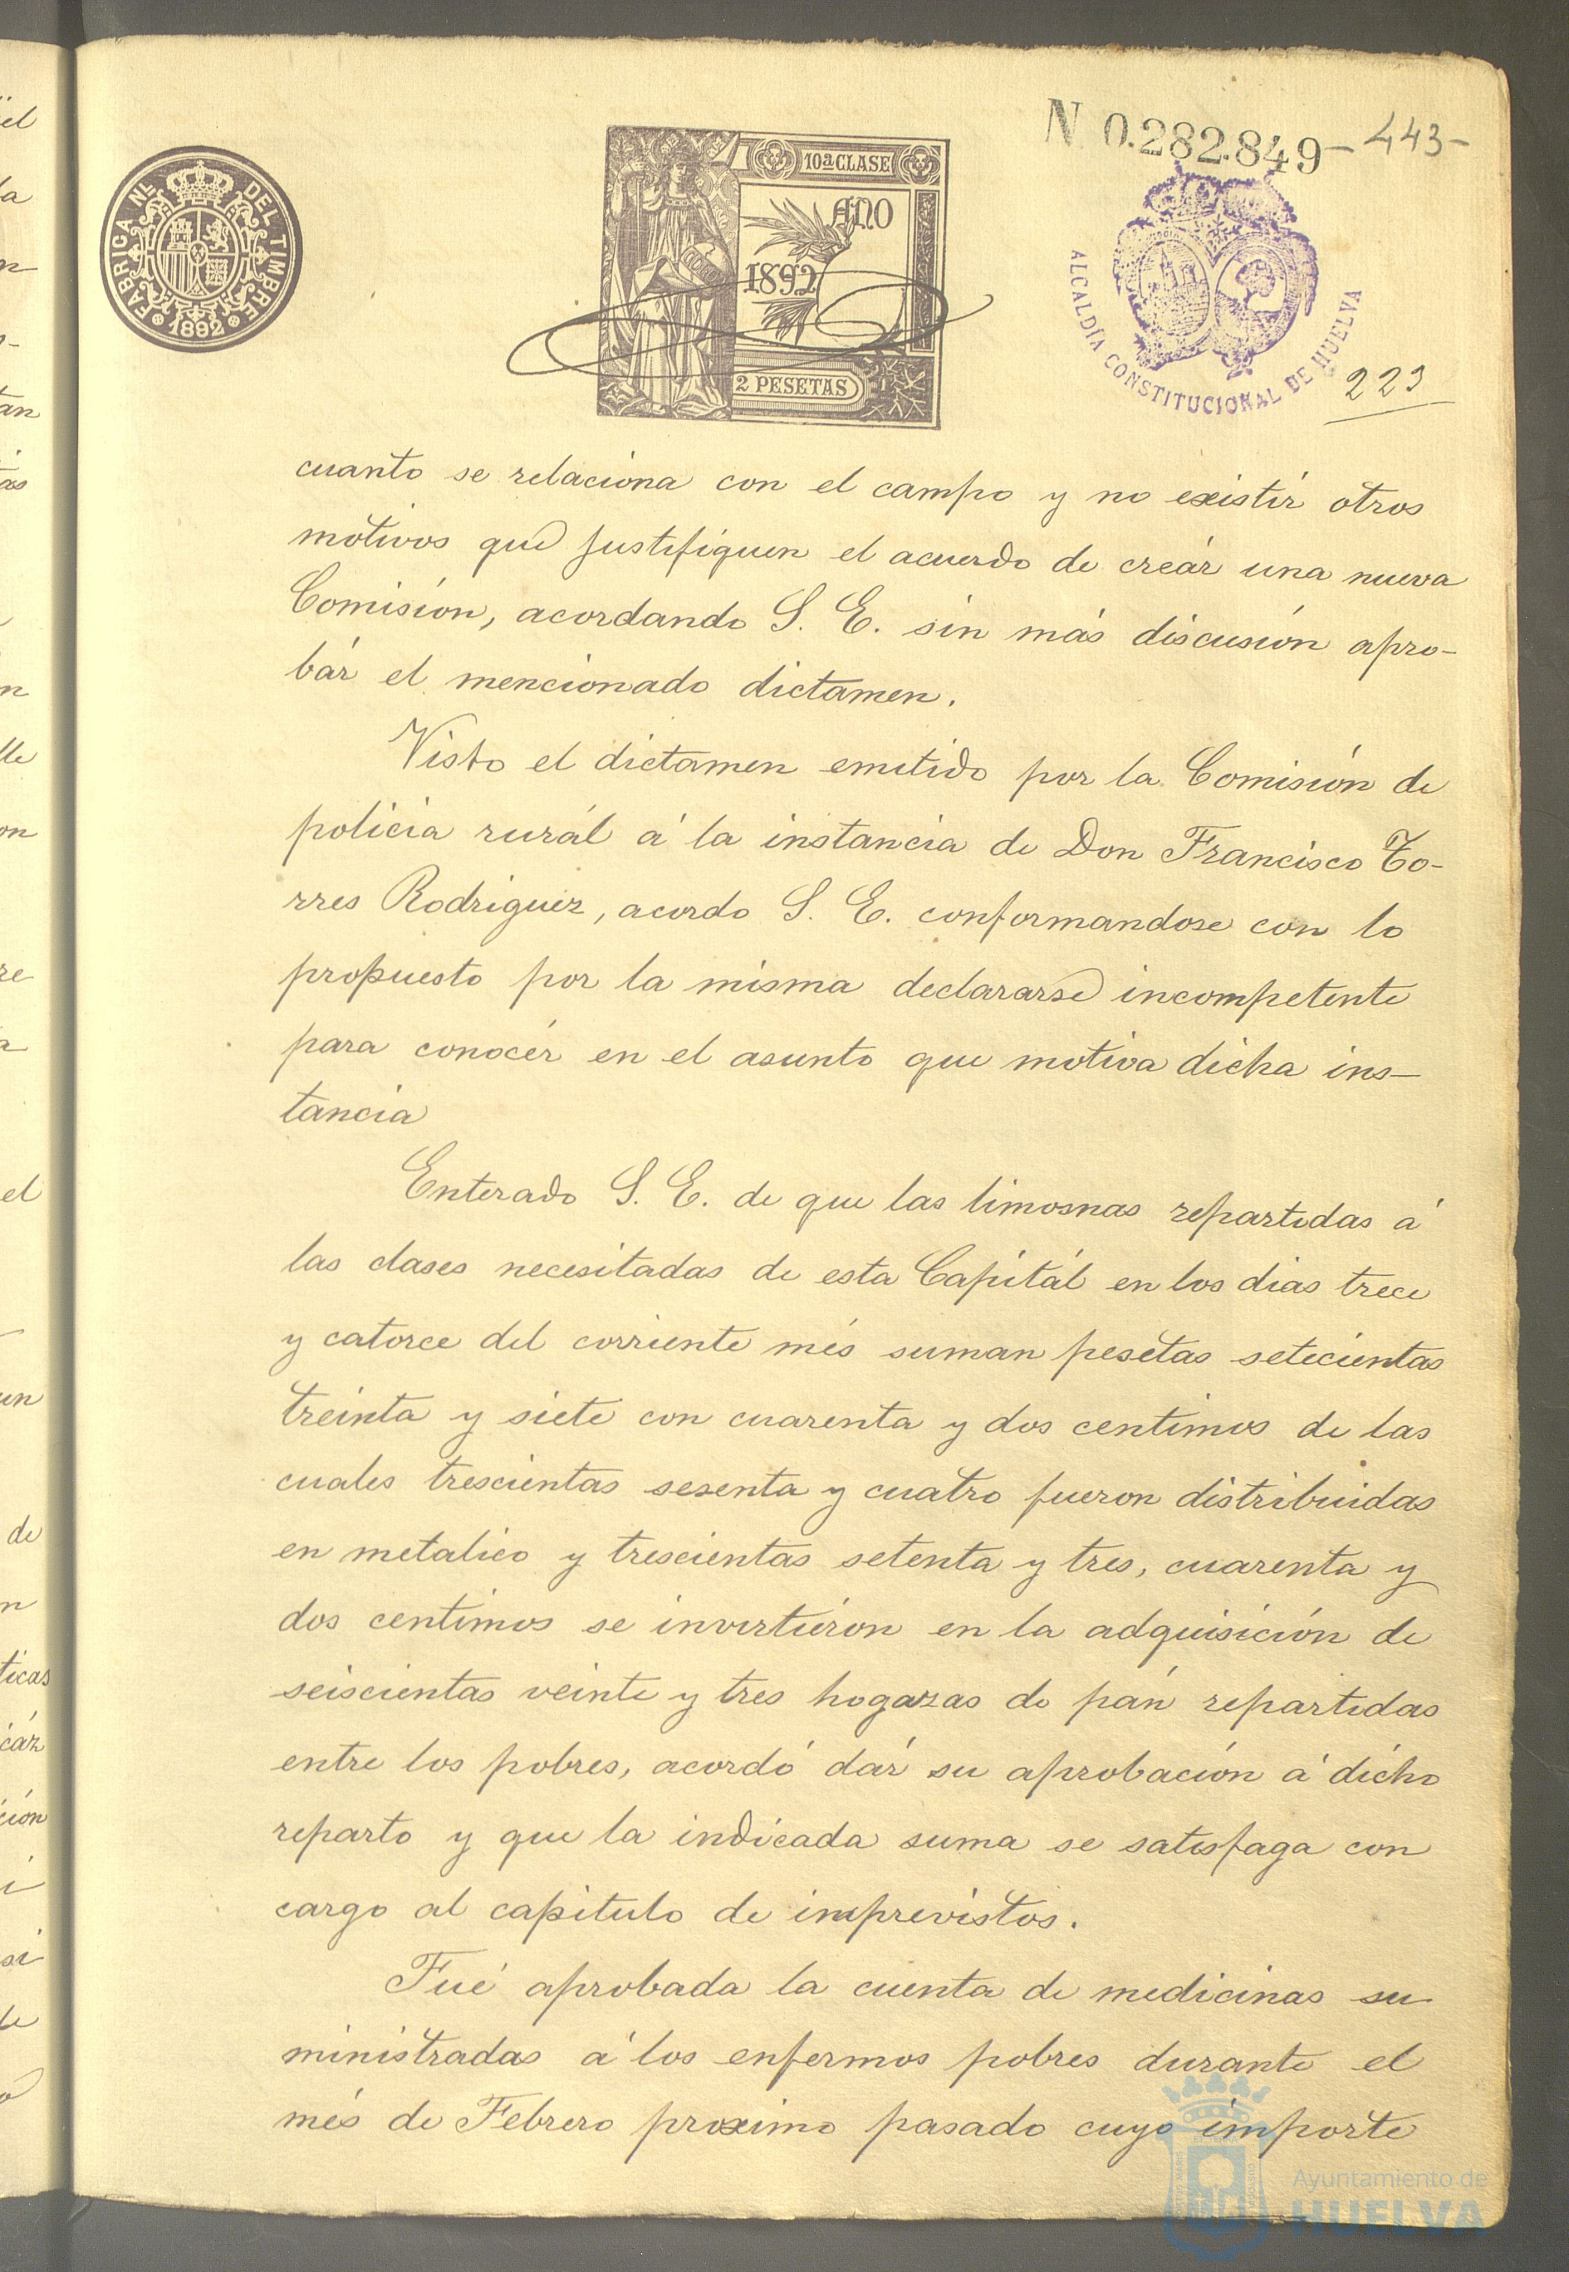 N 0.282.849 - 443 -
FABRICA NL. DEL TIMBRE
1892
10ª CLASE
AÑO
1892
2 PESETAS
ALCALDÍA CONSTITUCIONAL DE HUELVA
223
cuanto se relaciona con el campo y no existir otros
motivos que justifiquen el acuerdo de creár una nueva
Comisión, acordando S. E. sin más discusión apro-
bár el mencionado dictamen.
Visto el dictamen emitido por la Comisión de
policia rurál á la instancia de Don Francisco To-
rres Rodriguez, acordo S. E. conformandose con lo
propuesto por la misma declararse incompetente
para conocér en el asunto que motiva dicha ins-
tancia
Enterado S. E. de que las limosnas repartidas á
las clases necesitadas de esta Capitál en los dias trece
y catorce del corriente més suman pesetas setecientas
treinta y siete con cuarenta y dos centimos de las
cuales trescientas sesenta y cuatro fueron distribuidas
en metalico y trescientas setenta y tres, cuarenta y
dos centimos se invirtiéron en la adquisición de
seiscientas veinte y tres hogazas de pán repartidas
entre los pobres, acordó dár su aprobación á dicho
reparto y que la indicada suma se satisfaga con
cargo al capitulo de imprevistos.
Fué aprobada la cuenta de medicinas su
ministradas á los enfermos pobres durante el
més de Febrero proximo pasado cuyo importe
Ayuntamiento de
HUELVA